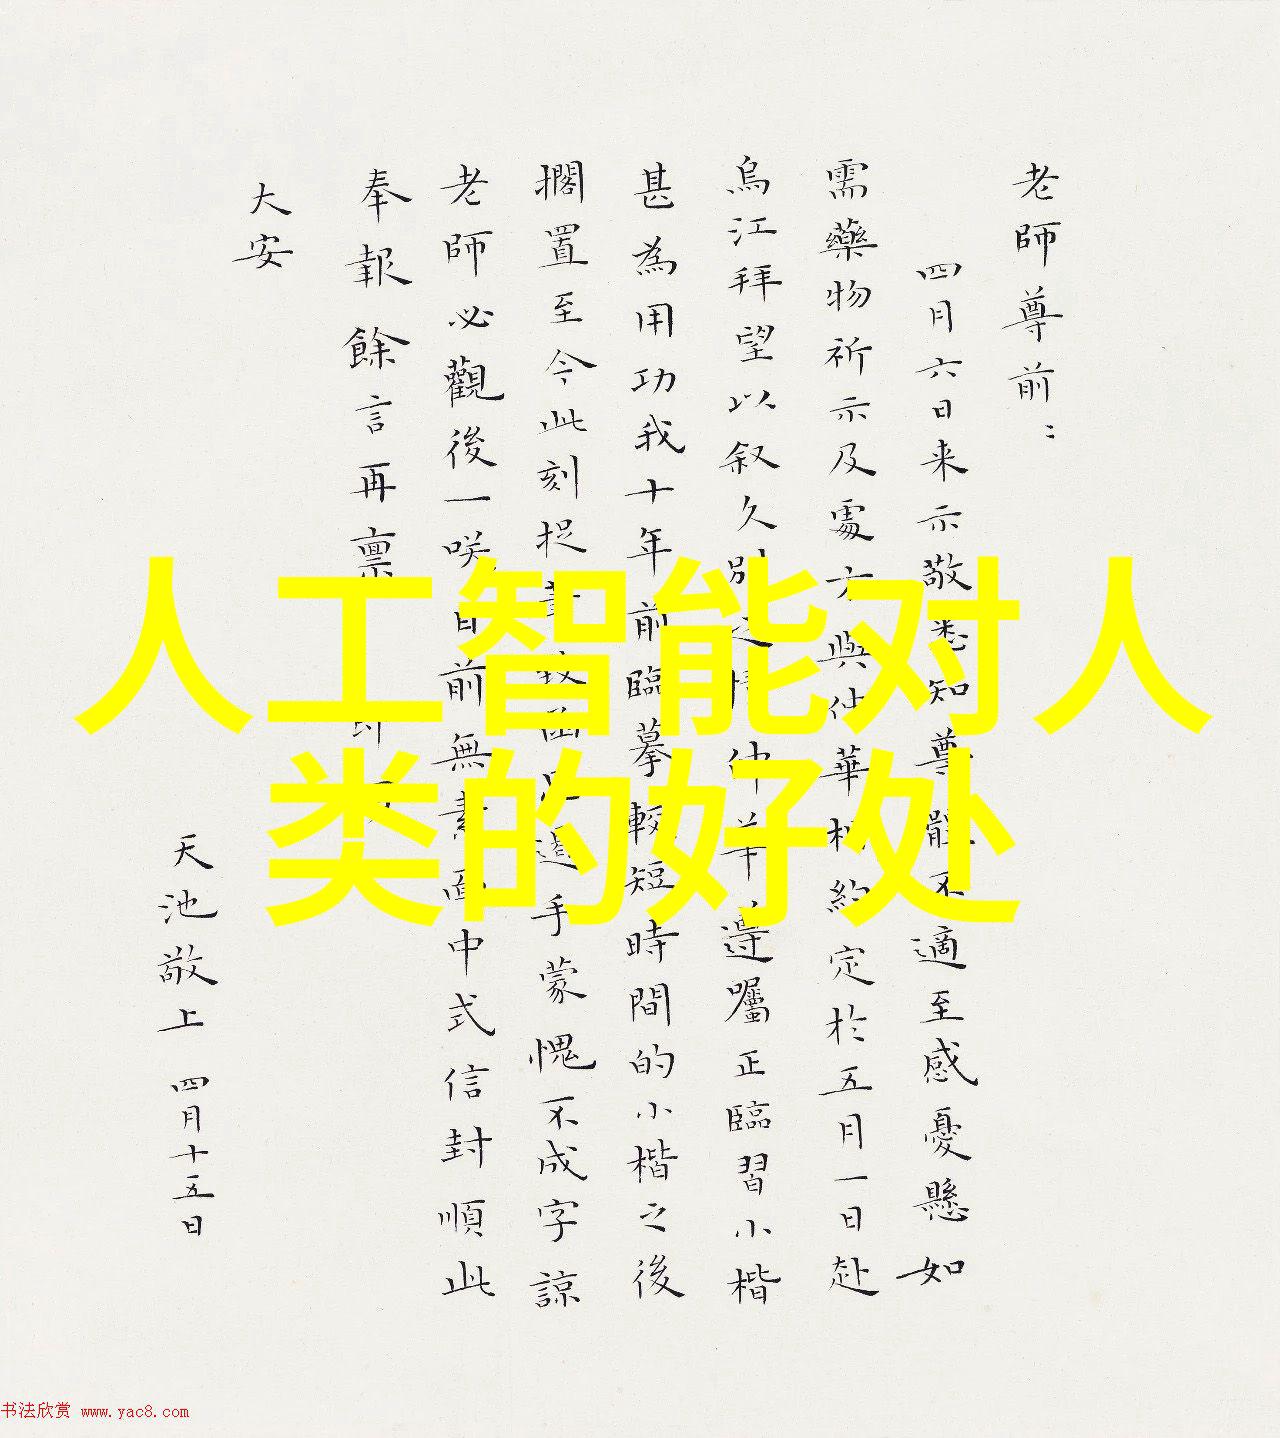 老師尊前：
四月六日来示敬悉知尊體不適至感憂懸如
需藥物祈示及處方與仲華樣約定於五月一日赴
烏江拜望以叙久別之情仲華邊囑正臨習小楷
甚為用功我十年前臨摹較短時間的小楷之後
擱置至今此刻捉書致函足過手蒙愧不成字諒
老師必觀後一咲日前無素函中式信封順此
奉報餘言再禀
大安
天池敬上 四月十五日
人工智能对人
类的好处
书法欣赏 www.yac8.com